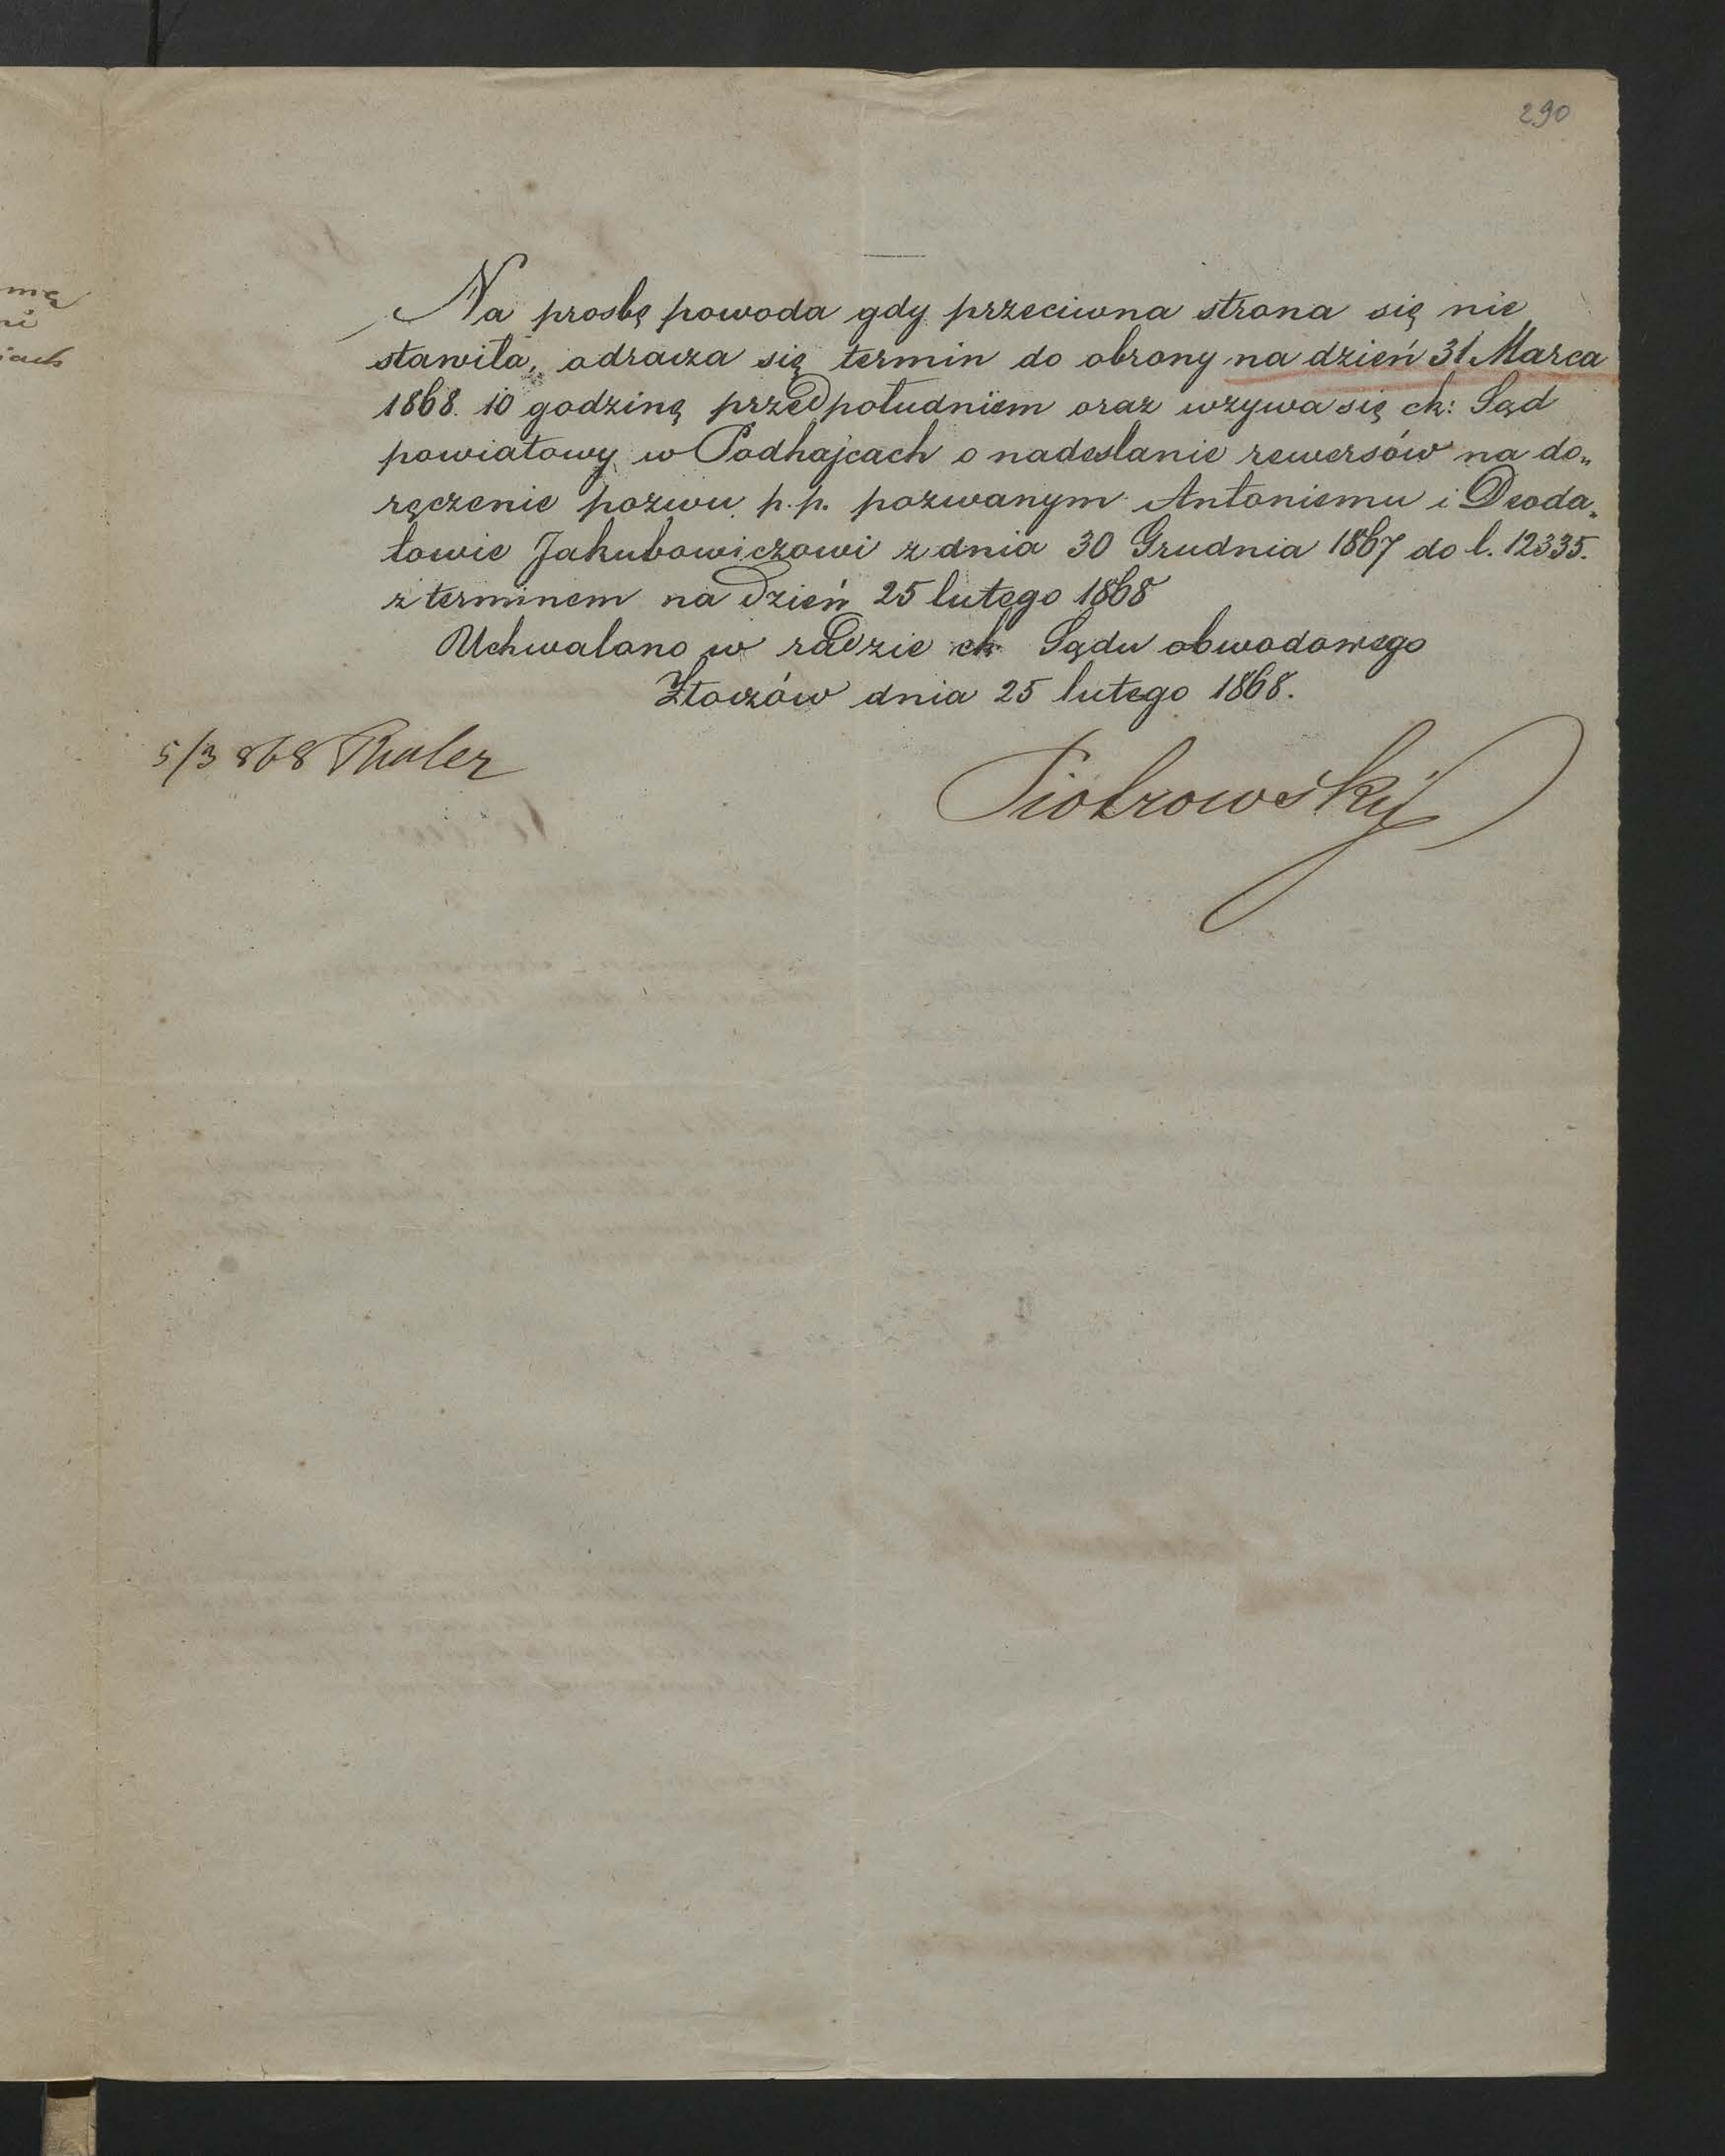 290
Na prosbę powoda gdy przeciwna strona się nie
stawiła, odracza się termin do obrony na dzień 31 Marca
1868. 10 godzinę przedpołudniem oraz wzywa się ck: Sąd
powiatowy w Podhajcach o nadesłanie rewersów na do„
ręczenie pozwu p.p. pozwanym Antoniemu i Deoda„
towie Jakubowiczowi z dnia 30 Grudnia 1867 do l. 12335.
z terminem na dzień 25 lutego 1868
Uchwalono w radzie ck Sądu obwodowego
Złoczów dnia 25 lutego 1868.
5/3 868
Piotrowskij